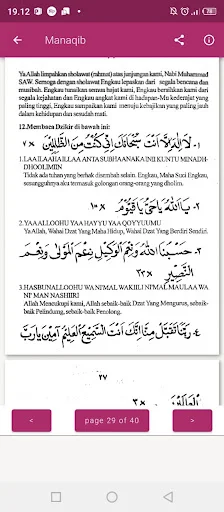 19.12
Manaqib
Ya Allah limpahkan sholawat (rahmat) atas junjungan kami, Nabi Muhammad
SAW. Semoga dengan sholawat Engkau lepaskan dari segala bencana dan
musibah. Engkau tunaikan semua hajat kami, Engkau bersihkan kami dari
segala kejahatan dan Engkau angkat kami di hadapan-Mu kederajat yang
paling tinggi. Engkau sampaikan kami menuju kebajikan yang paling jauh
dalam kehidupan dan sesudah mati.
12.Membaca Dzikir di bawah ini:
١- لَا إِلٰهَ إِلَّا أَنْتَ سُبْحَانَكَ إِنِّي كُنْتُ مِنَ الظَّالِمِيْنَ ×٧
1.LAA ILAAHA ILLAA ANTA SUBHAANAKA INII KUNTU MINADH-
DHOOLIMIN
Tidak ada tuhan yang berhak disembah selain. Engkau, Maha Suci Engkau,
sesungguhnya aku termasuk golongan orang-orang yang dholim.
٢- يَا اَللّٰهُ يَا حَيُّ يَا قَيُّوْمُ
2.YAA ALLOOHU YAA HAYYU YAA QOYYUUMU
Ya Allah, Wahai Dzat Yang Maha Hidup, Wahai Dzat Yang Berdiri Sendiri.
٣- حَسْبُنَا اللّٰهُ وَنِعْمَ الْوَكِيْلُ نِعْمَ الْمَوْلٰى وَنِعْمَ
النَّصِيْرُ ×٣٣
3.HASBUNALLOOHU WA NI'MAL WAKIILI NI'MAL MAULAA WA
NI' MAN NASHIIRI
Allah Mencukupi kami, Allah sebaik-baik Dzat Yang Mengurus, sebaik-
baik Pelindung, sebaik-baik Penolong.
٤- رَبَّنَا تَقَبَّلْ مِنَّا إِنَّكَ أَنْتَ السَّمِيْعُ الْعَلِيْمُ آمِيْنَ يَا رَبَّ
٢٧
الْعَالَمِيْنَ ×٣
<
page 29 of 40
>